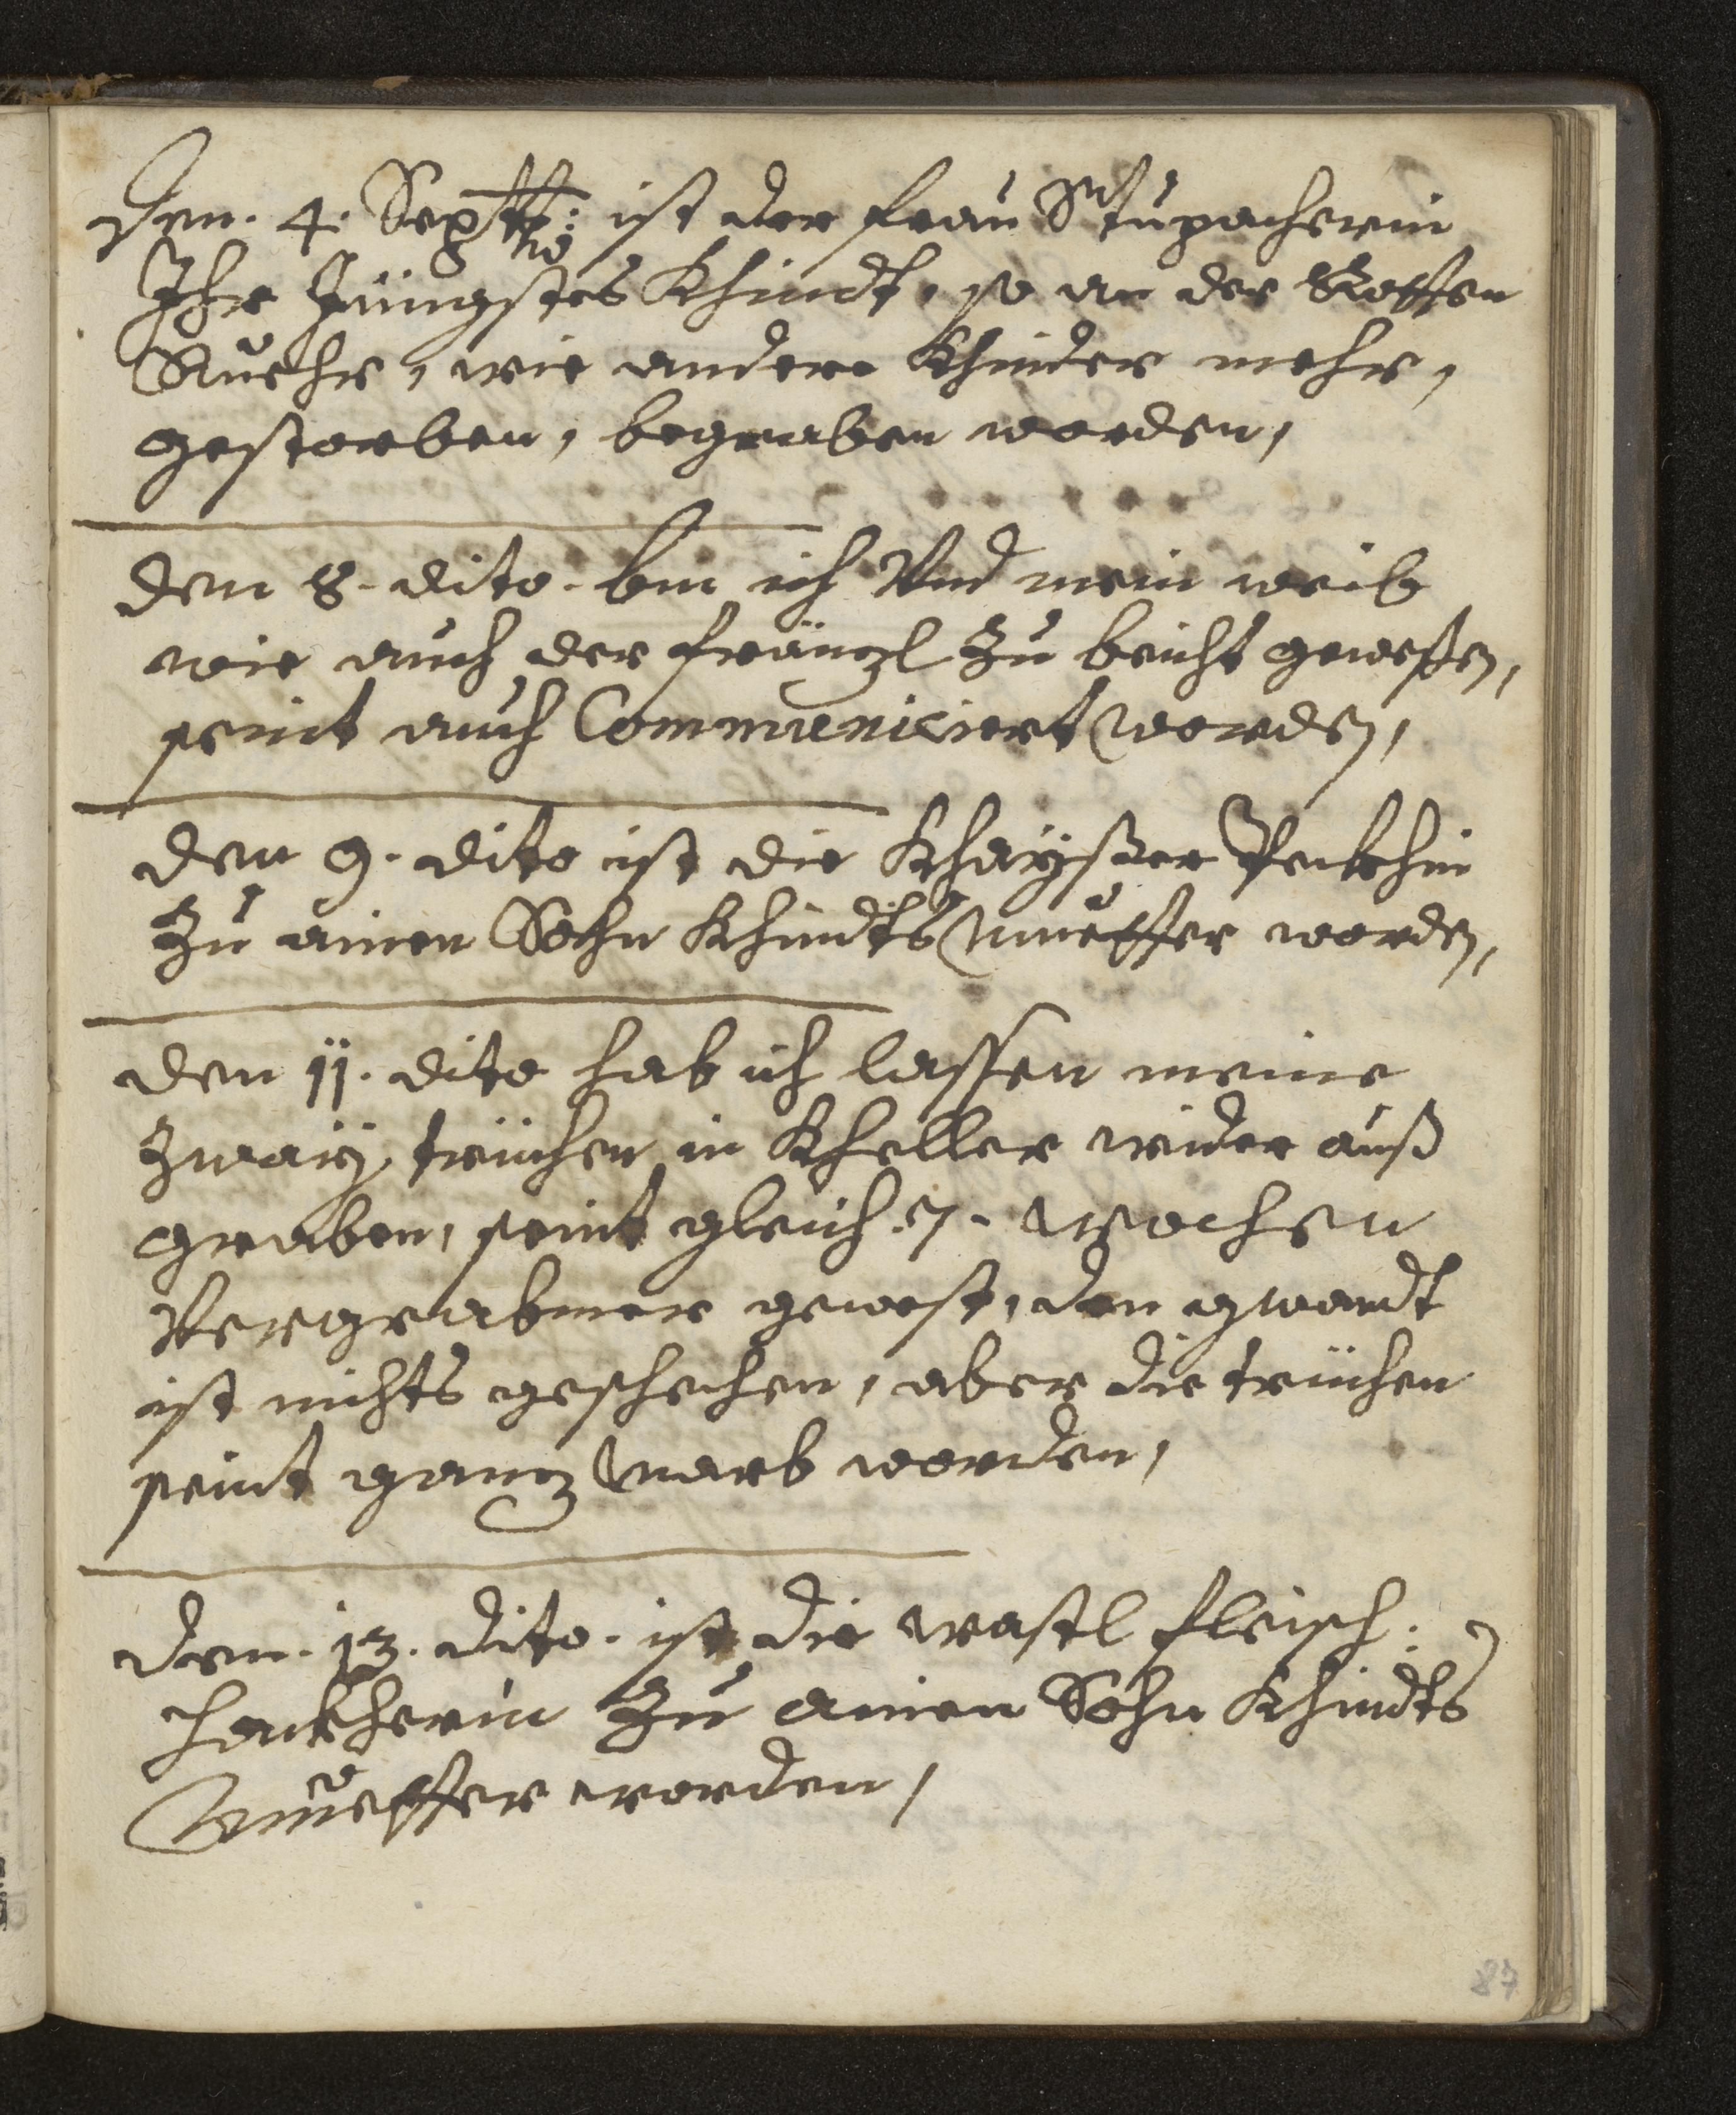 Den. 4. Septt: ist der frau Stupacherin
No
Ihr Jüngstes Khindt, so an der Rotten
Ruehr, wie andere Khinder mehr,
gestorben, begraben worden,
den 8. dito. bin ich Vnd mein weib
wie auch der fränzl zu beicht geweßen,
seint auch Communiciert worden,
den 9. dito ist die Khayßer Peckhin
zu ainen Sohn Khindts Mueter worden,
den 11. dito hab ich lassen meine
zway truchen in Kheller wider auß
graben, seint gleich. 7. Wochen
Vergrabmer gewest, den gwandt
ist nichts geschechen, aber die truchen
seint ganz Marb worden,
den. 13. dito. ist die wastl fleisch:
hackherin zu ainen Sohn Khindts
Muetter worden,
87